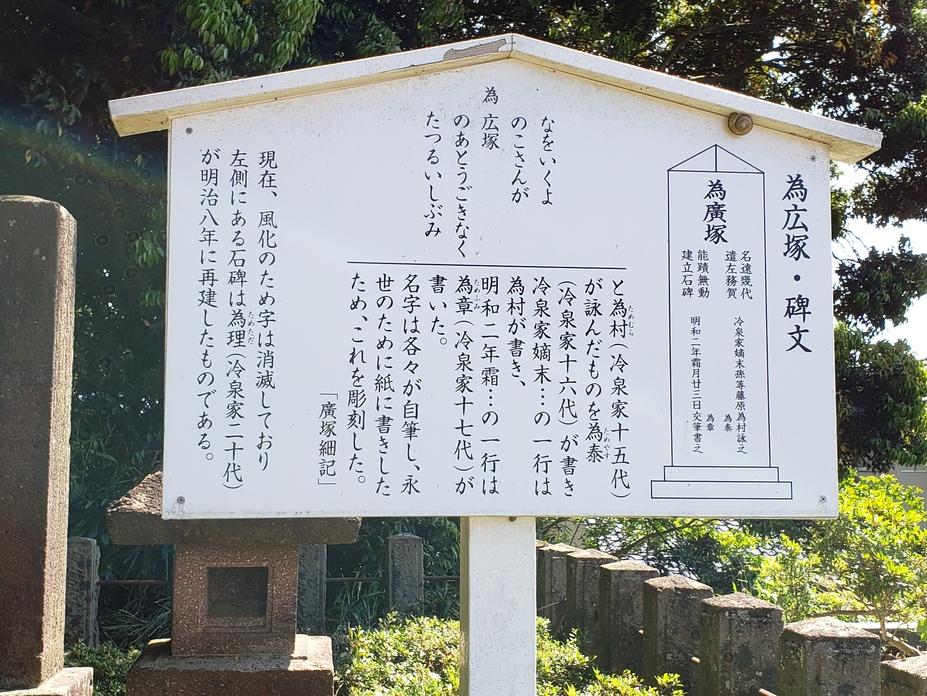 為広塚・碑文
為廣塚
名遠幾代
遣左務賀
能蹟無動
建立石碑
冷泉家嫡末孫等藤原為村詠之
為泰
明和二年霜月廿三日交筆書之
為章
なをいくよ
のこさんが
為広塚
のあとうごきなく
たつるいしぶみ
と為村(冷泉家十五代)
ためむら
が詠んだものを為泰
ためやす
(冷泉家十六代)が書き
冷泉家嫡末…の一行は
為村が書き、
明和二年霜…の一行は
為章(冷泉家十七代)が
たためふみ
書いた。
名字は各々が自筆し、永
世のために紙に書きした
ため、これを彫刻した。
「廣塚細記」
現在、風化のため字は消滅しており
左側にある石碑は為理(冷泉家二十代)
ためただ
が明治八年に再建したものである。